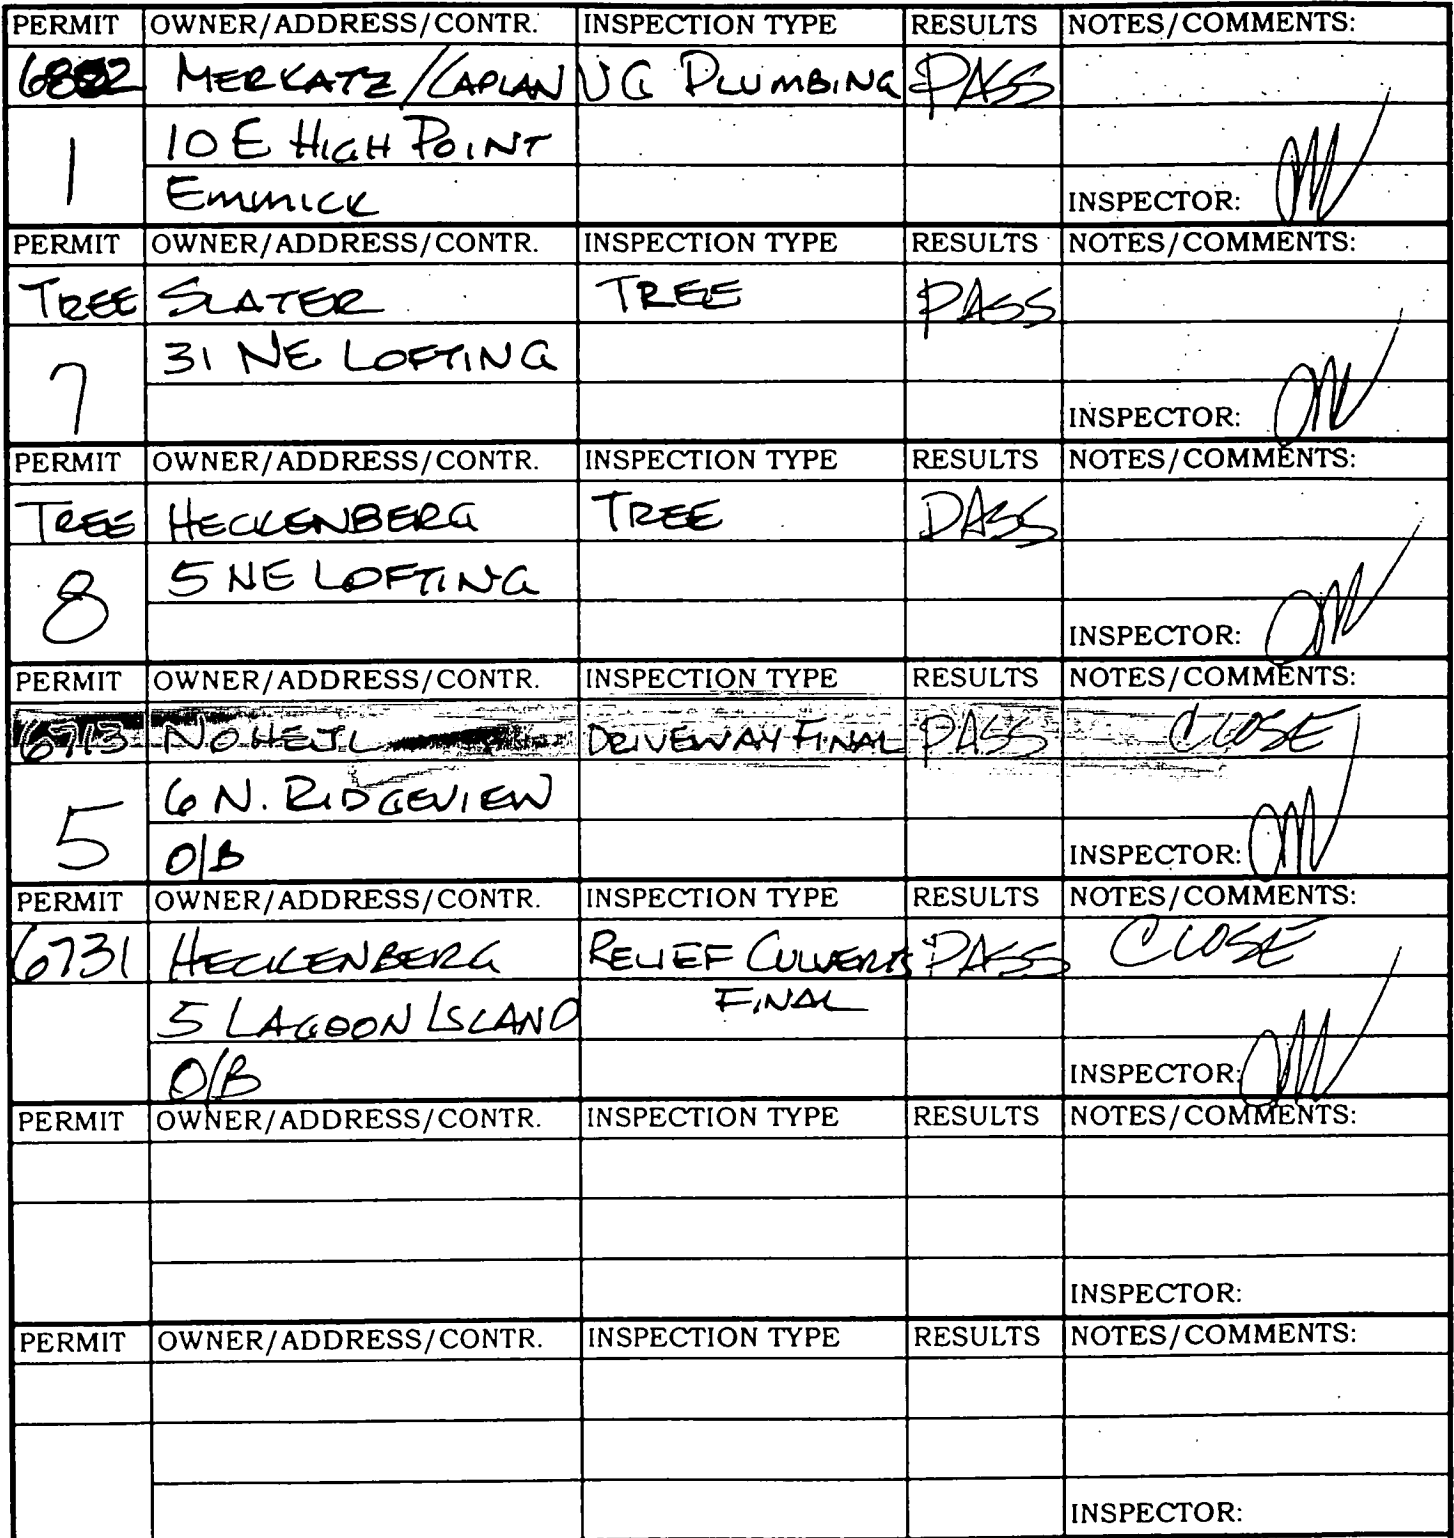 PERMIT OWNER/ADDRESS/CONTR. INSPECTION TYPE RESULTS NOTES/COMMENTS:
MERKATZ/KAPLAN UG PLUMBING PASS
1 10 E HIGH POINT
EMMICK INSPECTOR:
PERMIT OWNER/ADDRESS/CONTR. INSPECTION TYPE RESULTS NOTES/COMMENTS:
TREE SLATER TREE PASS
7 31 NE LOFTING
INSPECTOR:
PERMIT OWNER/ADDRESS/CONTR. INSPECTION TYPE RESULTS NOTES/COMMENTS:
TREE HECKENBERG TREE PASS
8 5 NE LOFTING
INSPECTOR:
PERMIT OWNER/ADDRESS/CONTR. INSPECTION TYPE RESULTS NOTES/COMMENTS:
6713 NOHEJL DRIVEWAY FINAL PASS CLOSE
5 6 N. RIDGEVIEW
O/B INSPECTOR:
PERMIT OWNER/ADDRESS/CONTR. INSPECTION TYPE RESULTS NOTES/COMMENTS:
6731 HECKENBERG RELIEF CULVERT PASS CLOSE
5 LAGOON ISLAND FINAL
O/B INSPECTOR:
PERMIT OWNER/ADDRESS/CONTR. INSPECTION TYPE RESULTS NOTES/COMMENTS:
INSPECTOR:
PERMIT OWNER/ADDRESS/CONTR. INSPECTION TYPE RESULTS NOTES/COMMENTS:
INSPECTOR: